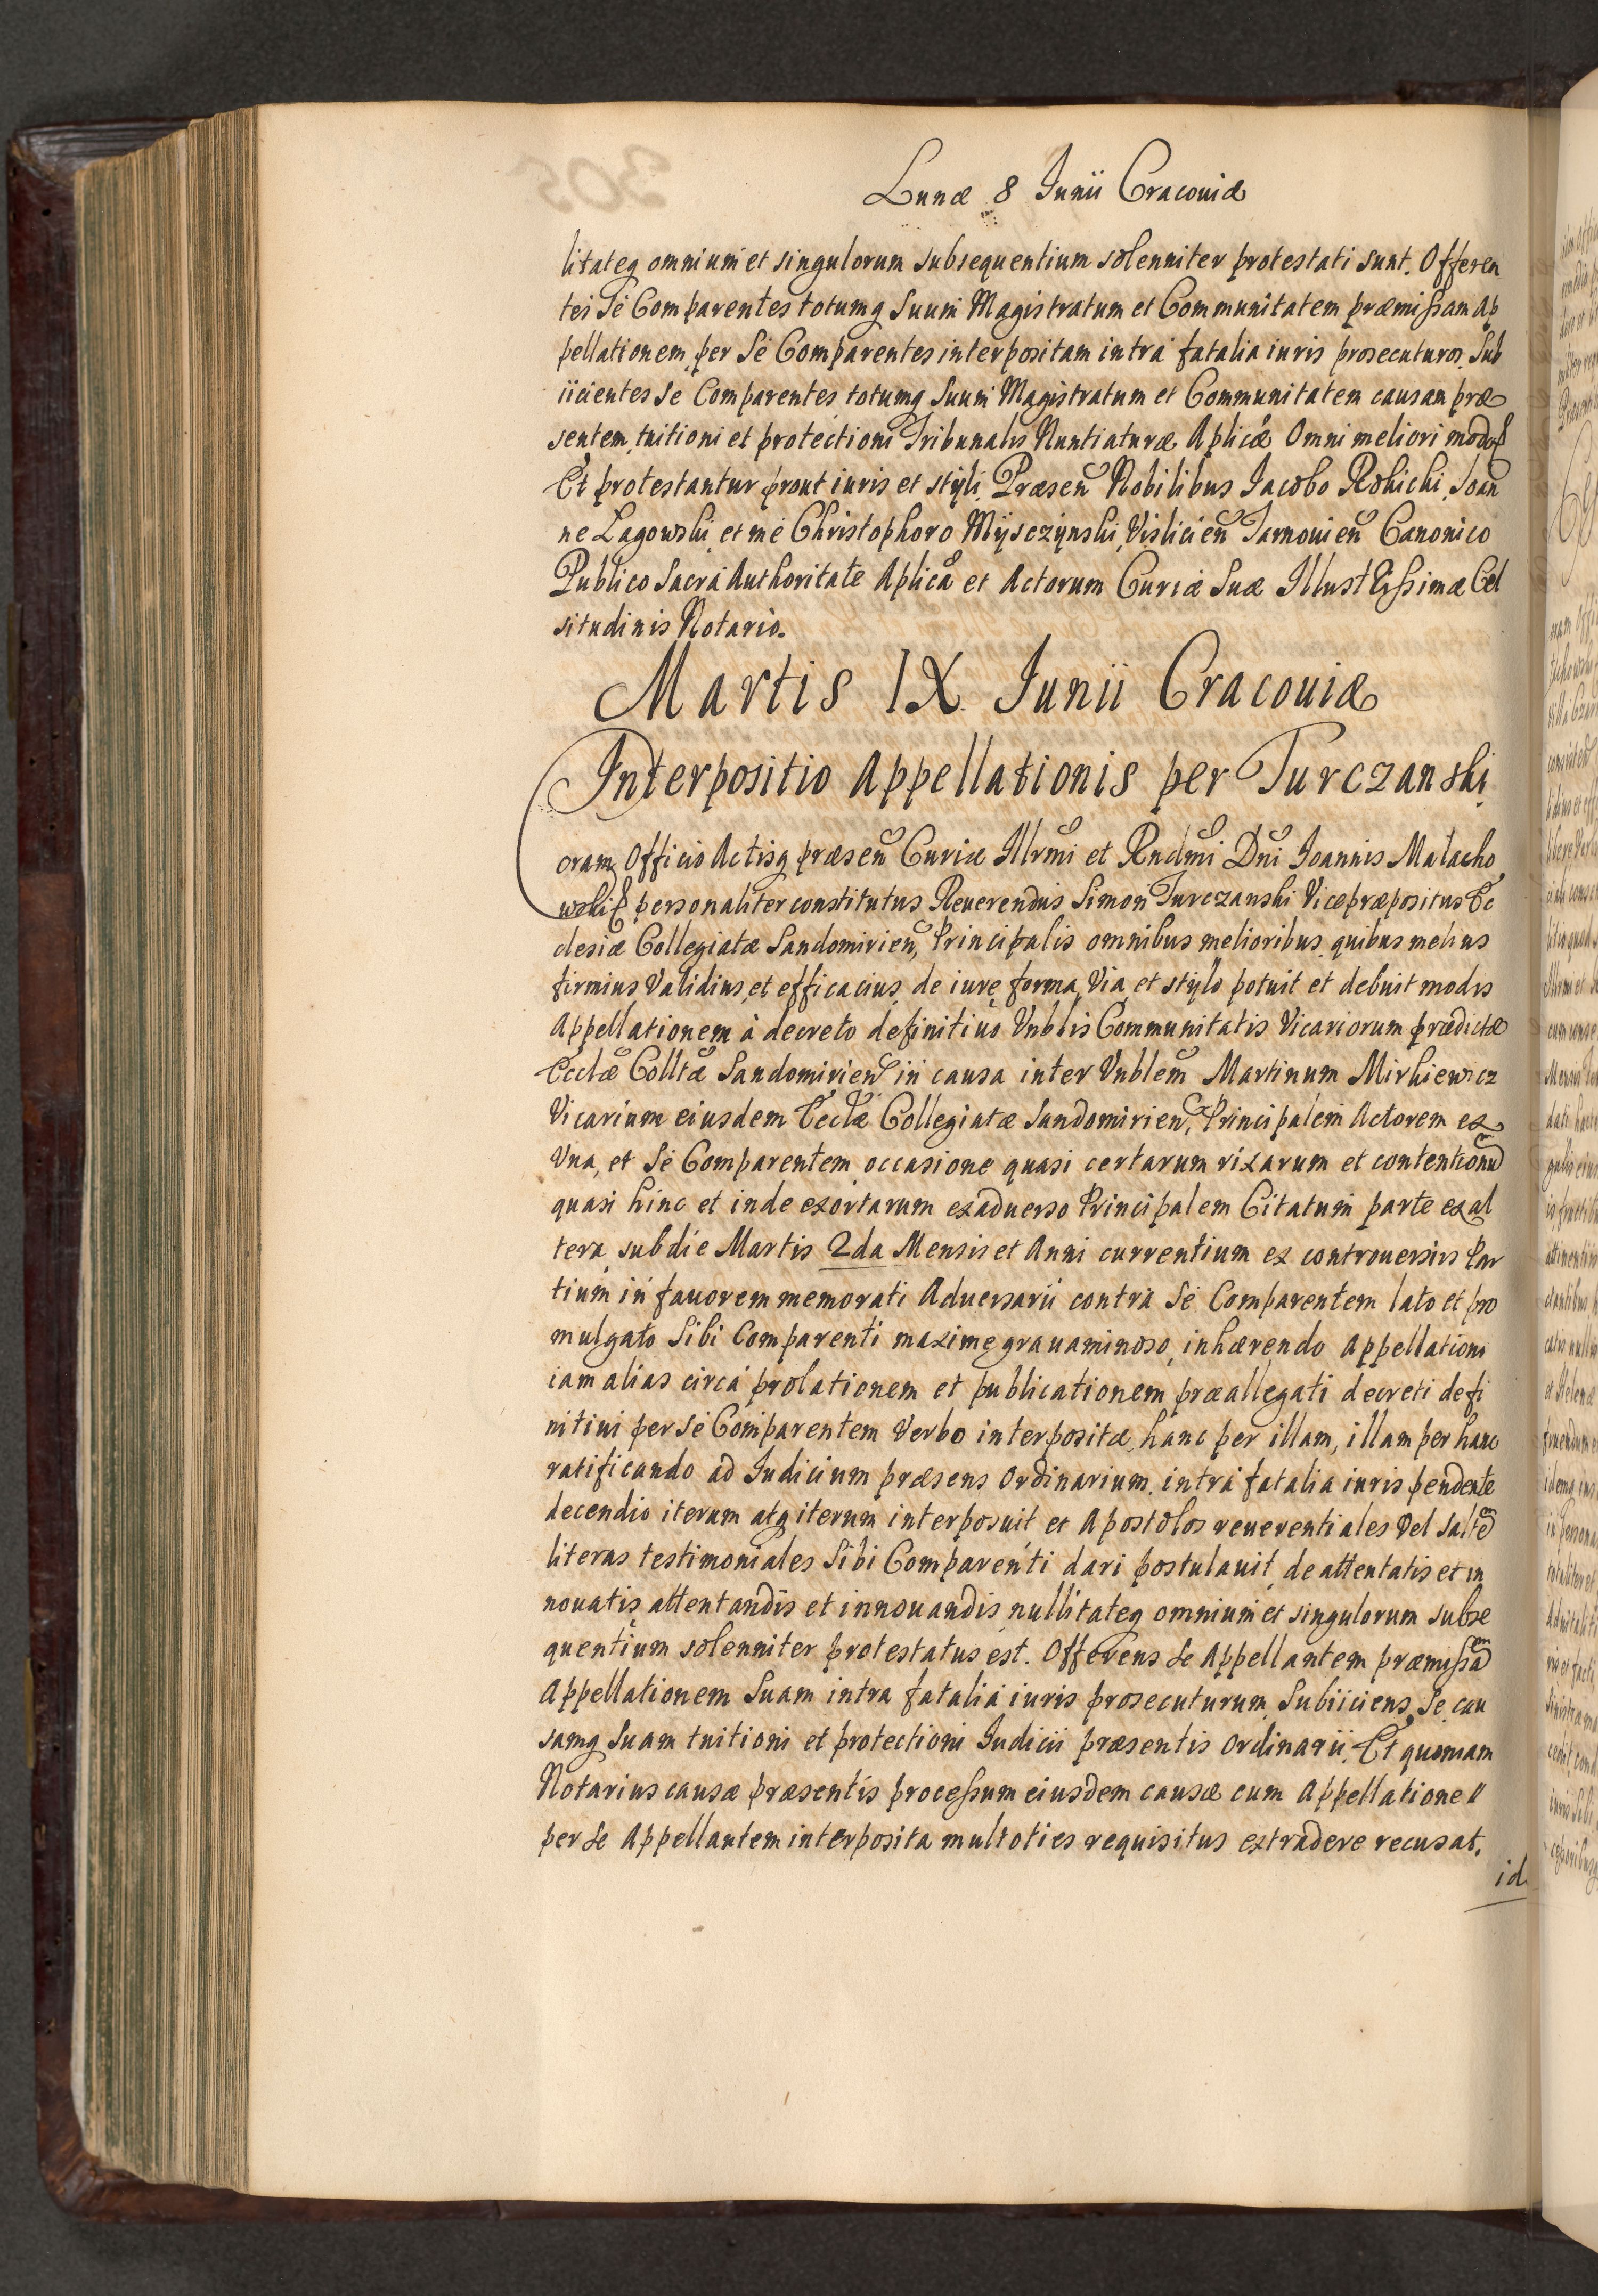 Lunæ 8 Junii Cracoviæ
litateq omnium et singulorum subsequentium solenniter protestati sunt. Offeren
tes sè Comparentes totumq suum Magistratum et Communitatem præmissam Ap
pellationem per Sè Comparentes interpositam intra fatalia iuris prosecuturos, Sub
iicientes se Comparentes totumq suum Magistratum et Communitatem causam præ
sentem tuitioni et protectioni Tribunalis Nuntiaturæ Aplicæ Omni meliori modo
Et protestantur prout iuris et styli. Præsen Nobilibus Jacobo Rokicki, Joan
ne Lagowski et mè Christophoro Mysczynski Vislicien Tarnovien Canonico
Publico Sacra Authoritate Aplica et Actorum Curiæ Suæ Illustrissimæ Cel
situdinis Notario.
Martis IX Junii Cracoviæ
Interpositio Appellationis per Turczanski
Coram Officio Actisq præsen Curiæ Illrmi et Rndmi Dni Joannis Malacho
wski personaliter constitutus Reverendus Simon Turczanski Vicepræpositus Ec
clesiæ Collegiatæ Sandomirien, Principalis omnibus melioribus quibus melius
firmius Validius, et efficacius de iure forma, Via et stylo potuit et debuit modis
Appellationem à decreto definitivo Vnblis Communitatis Vicariorum prædictæ
Ecclæ Colltæ Sandomirien in causa inter Vnblem Martinum Mirkiewicz
Vicarium eiusdem Ecclæ Collegiatæ Sandomirien, Principalem Actorem ex
Vna, et Sè Comparentem occasione quasi certarum rixarum et contentionu
quasi hinc et inde exortarum exadverso Principalem Citatum parte ex al
tera, sub die Martis 2da Mensis et Anni currentium ex controversiis Par
tium in favorem memorati Adversarii contra Sè Comparentem lato et pro
mulgato Sibi Comparenti maxime gravaminoso, inhærendo Appellationi
iam alias circa prolationem et publicationem præallegati decreti defi
nitivi per sè Comparentem Verbo interpositæ, hanc per illam, illam per hanc
ratificando ad Judicium præsens Ordinarium intra fatalia iuris pendente
decendio iterum atq iterum interposuit et Apostolos reverentiales Vel saltē
literas testimoniales Sibi Comparenti dari postulavit, de attentatis et in
novatis attentandis et innovandis nullitateq omnium et singulorum subse
quentium solenniter protestatus est. Offerens se Appellantem præmissam
Appellationem Suam intra fatalia iuris prosecuturum, Subiiciens Se cau
samq Suam tuitioni et protectioni Judicii præsentis Ordinarii. Et quoniam
Notarius causæ præsentis processum eiusdem causæ cum Appellatione
per se Appellantem interposita multoties requisitus extradere recusat.
id